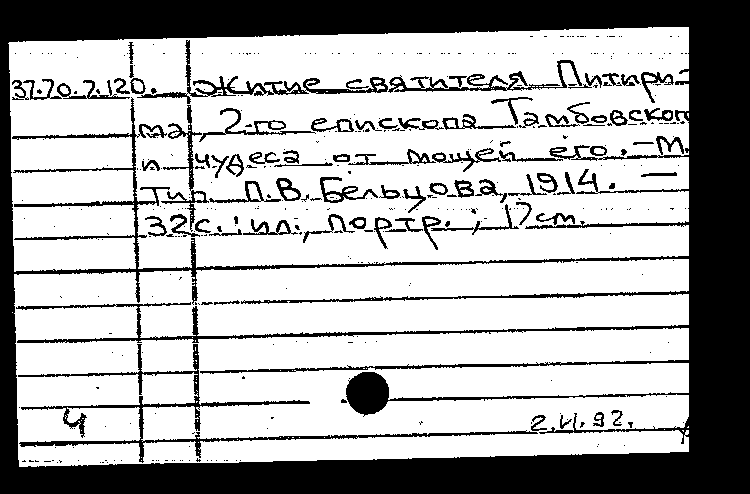 37.70.7.120. Житие святителя Питири-
ма, 2-го епископа Тамбовског
и чудеса от мощей его. – М.
Тип. П.В. Бельцова, 1914. —
32с. : ил., портр. ; 17см.
Ч 2.VI.92.